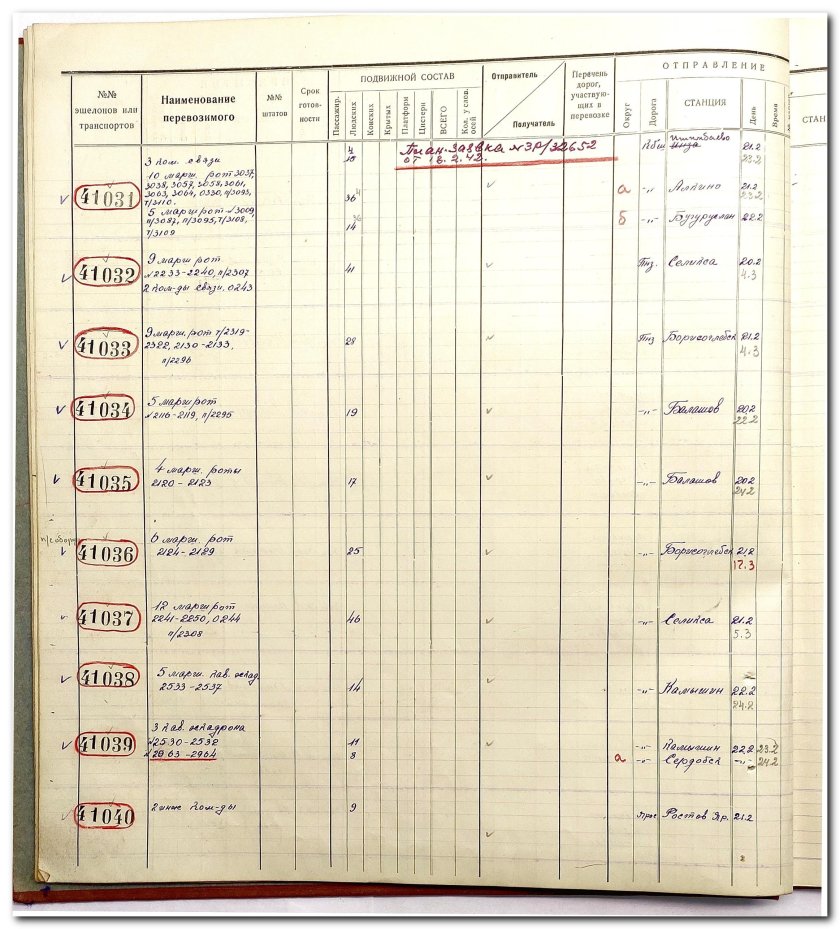 №№ эшелонов или транспортов
Наименование перевозимого
№№ штатов
Срок готов-ности
ПОДВИЖНОЙ СОСТАВ
Пассажир.
Людских
Конских
Крытых
Платформ
Цистерн
ВСЕГО
Кол. у слов. осей
Отправитель
Получатель
Перечень дорог, участвую-щих в перевозке
ОТПРАВЛЕНИЕ
Округ
Дорога
СТАНЦИЯ
День
Время
СТАН
План-заявка №ЗР/32652
от 18.2.42.
3 ком. связи 10 Кбш 21.2
23.2
41031
10 марш. рот 3037,
3038, 3057, 3058, 3061,
3063, 3064, 0330, п/3093,
т/3110. 36 а -„- Алкино 21.2
23.2
5 марш рот №3009,
п/3087, п/3095, т/3108,
т/3109 14 б -„- Бугуруслан 22.2
41032
9 марш рот
№2233-2240, п/2307 41 Пнз. Селикса 20.2
2 ком-ды связи. 0243 4.3
41033
9 марш. рот т/2319-
2322, 2130-2133, 28 Пнз Борисоглебск 21.2
п/2296 4.3
41034
5 марш рот
№2116-2119, п/2295 19 -„- Балашов 20.2
22.2
41035
4 марш. роты
2120-2123 17 -„- Балашов 20.2
24.2
41036
6 марш. рот
2124-2129 25 -„- Борисоглебск 21.2
17.3
41037
12 марш рот
2241-2250, 0244 46 -„- Селикса 21.2
п/2308 5.3
41038
5 марш. кав. эскад.
2533-2537 14 -„- Камышин 22.2
24.2
41039
3 кав. эскадрона
№2530-2532 11 -„- Камышин 22.2 23.2
№2963-2964 8 а -„- Сердобск -„- 24.2
41040
2 ком-ды 9 Яро Ростов Яр. 21.2